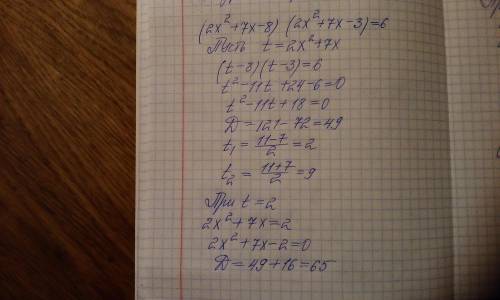 (2x²+7x-8) (2x²+7x-3)=6
Пусть t=2x²+7x
(t-8)(t-3)=6
t²-11t+24-6=0
t²-11t+18=0
D=121-72=49
t₁=(11-7)/2=2
t₂=(11+7)/2=9
При t=2
2x²+7x=2
2x²+7x-2=0
D=49+16=65